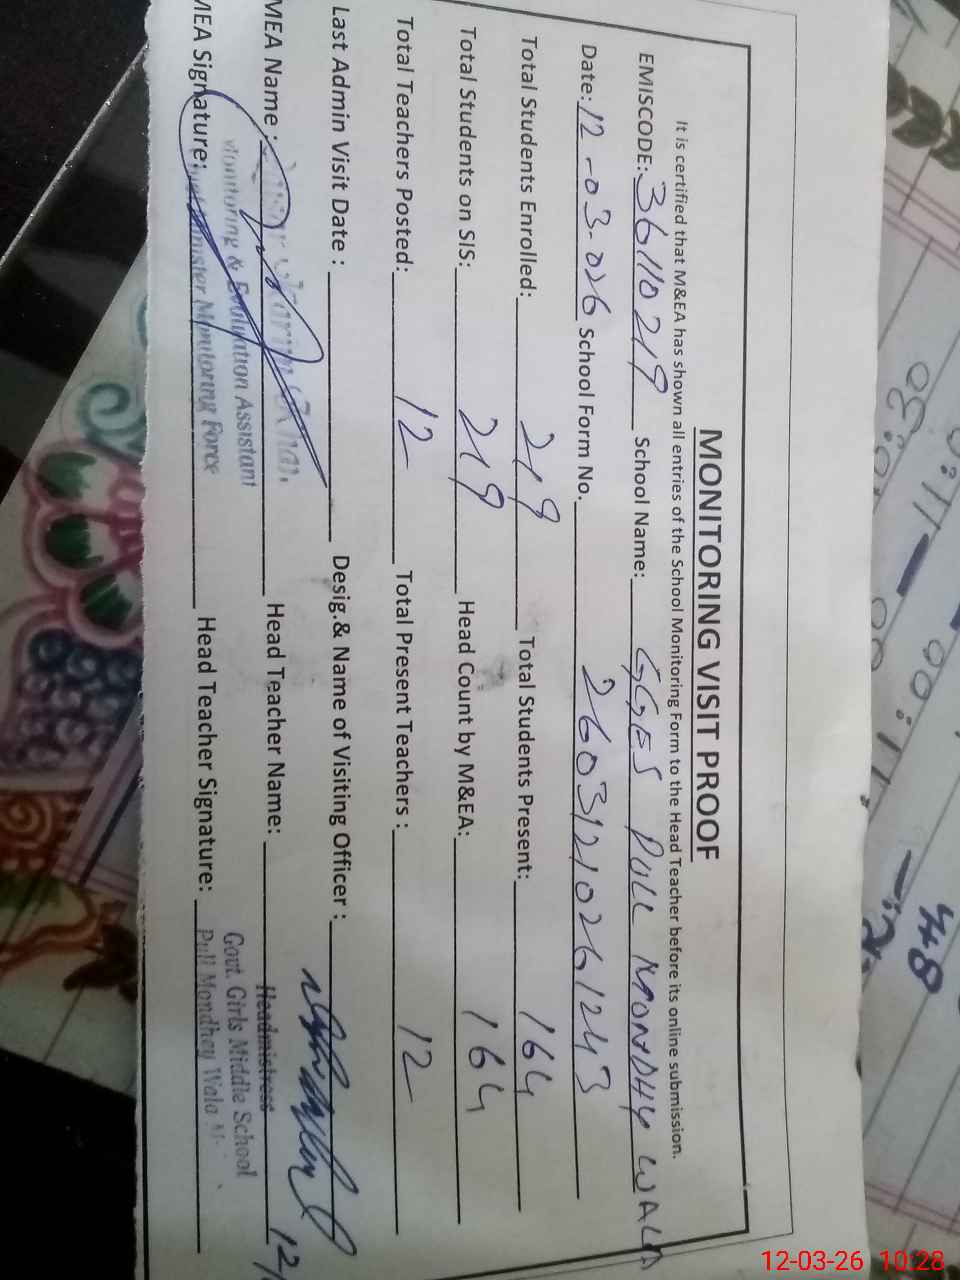 MONITORING VISIT PROOF
It is certified that M&EA has shown all entries of the School Monitoring Form to the Head Teacher before its online submission.
EMISCODE: 36110219 School Name: GGES PULL MONDHY WALA
Date: 12-03-026 School Form No. 26031210261243
Total Students Enrolled: 219 Total Students Present: 164
Total Students on SIS: 219 Head Count by M&EA: 164
Total Teachers Posted: 12 Total Present Teachers : 12
Last Admin Visit Date : Desig.& Name of Visiting Officer :
MEA Name : Head Teacher Name:
Monitoring & Evaluation Assistant
Headmistress
Govt. Girls Middle School
MEA Signature: Minister Monitoring Force Head Teacher Signature: Pull Mondhey Wala
48
12-03-26 10:28